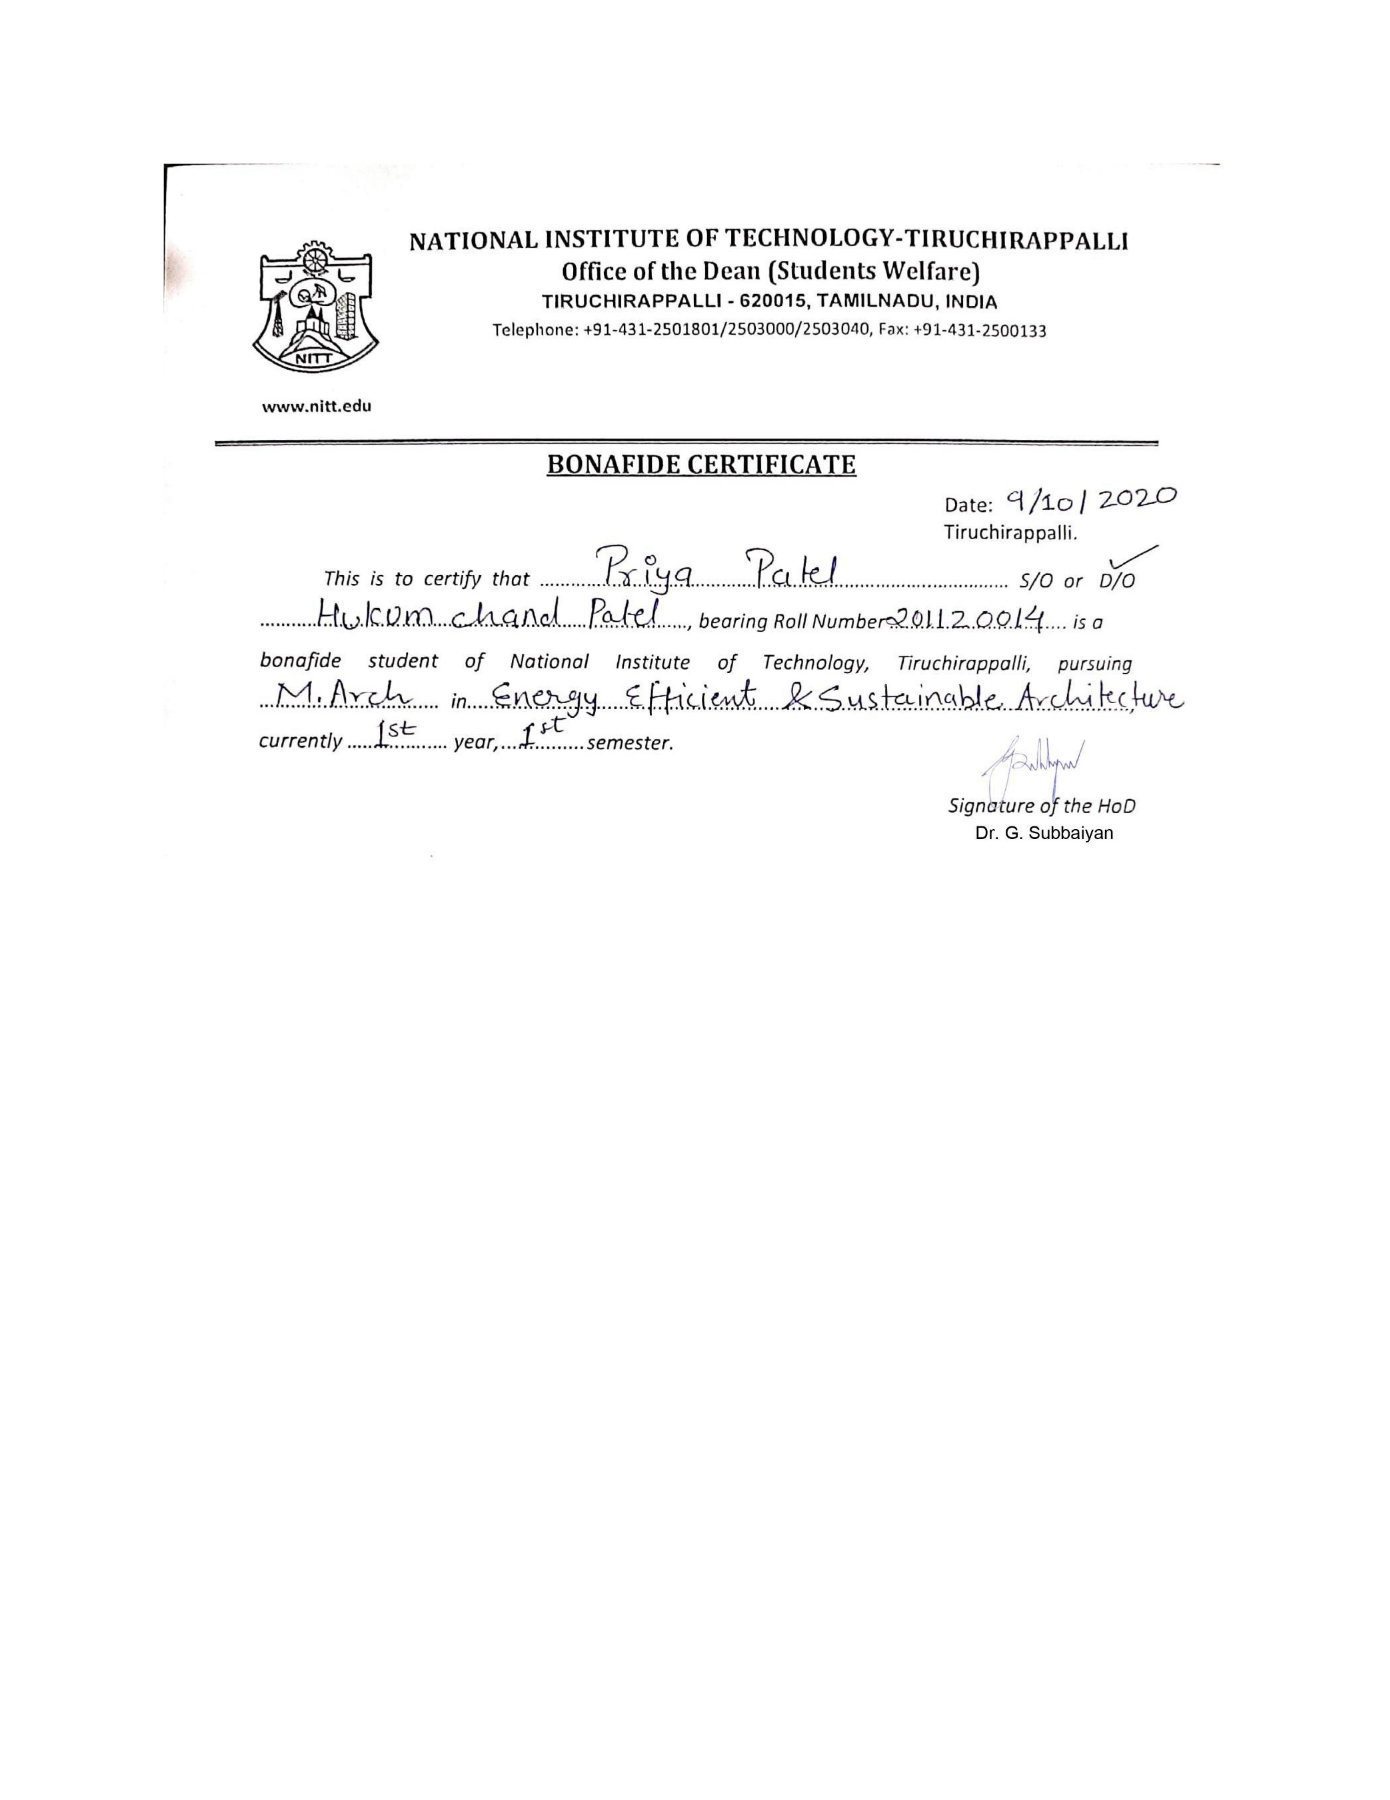 NATIONAL INSTITUTE OF TECHNOLOGY-TIRUCHIRAPPALLI
Office of the Dean (Students Welfare)
TIRUCHIRAPPALLI - 620015, TAMILNADU, INDIA
Telephone: +91-431-2501801/2503000/2503040, Fax: +91-431-2500133
NITT
www.nitt.edu
BONAFIDE CERTIFICATE
Date: 9/10/2020
Tiruchirappalli.
This is to certify that Priya Patel S/O or D/O
Hukum chand Patel, bearing Roll Number 201120014 is a
bonafide student of National Institute of Technology, Tiruchirappalli, pursuing
M.Arch in Energy Efficient & Sustainable Architecture,
currently 1st year, 1st semester.
Signature of the HoD
Dr. G. Subbaiyan